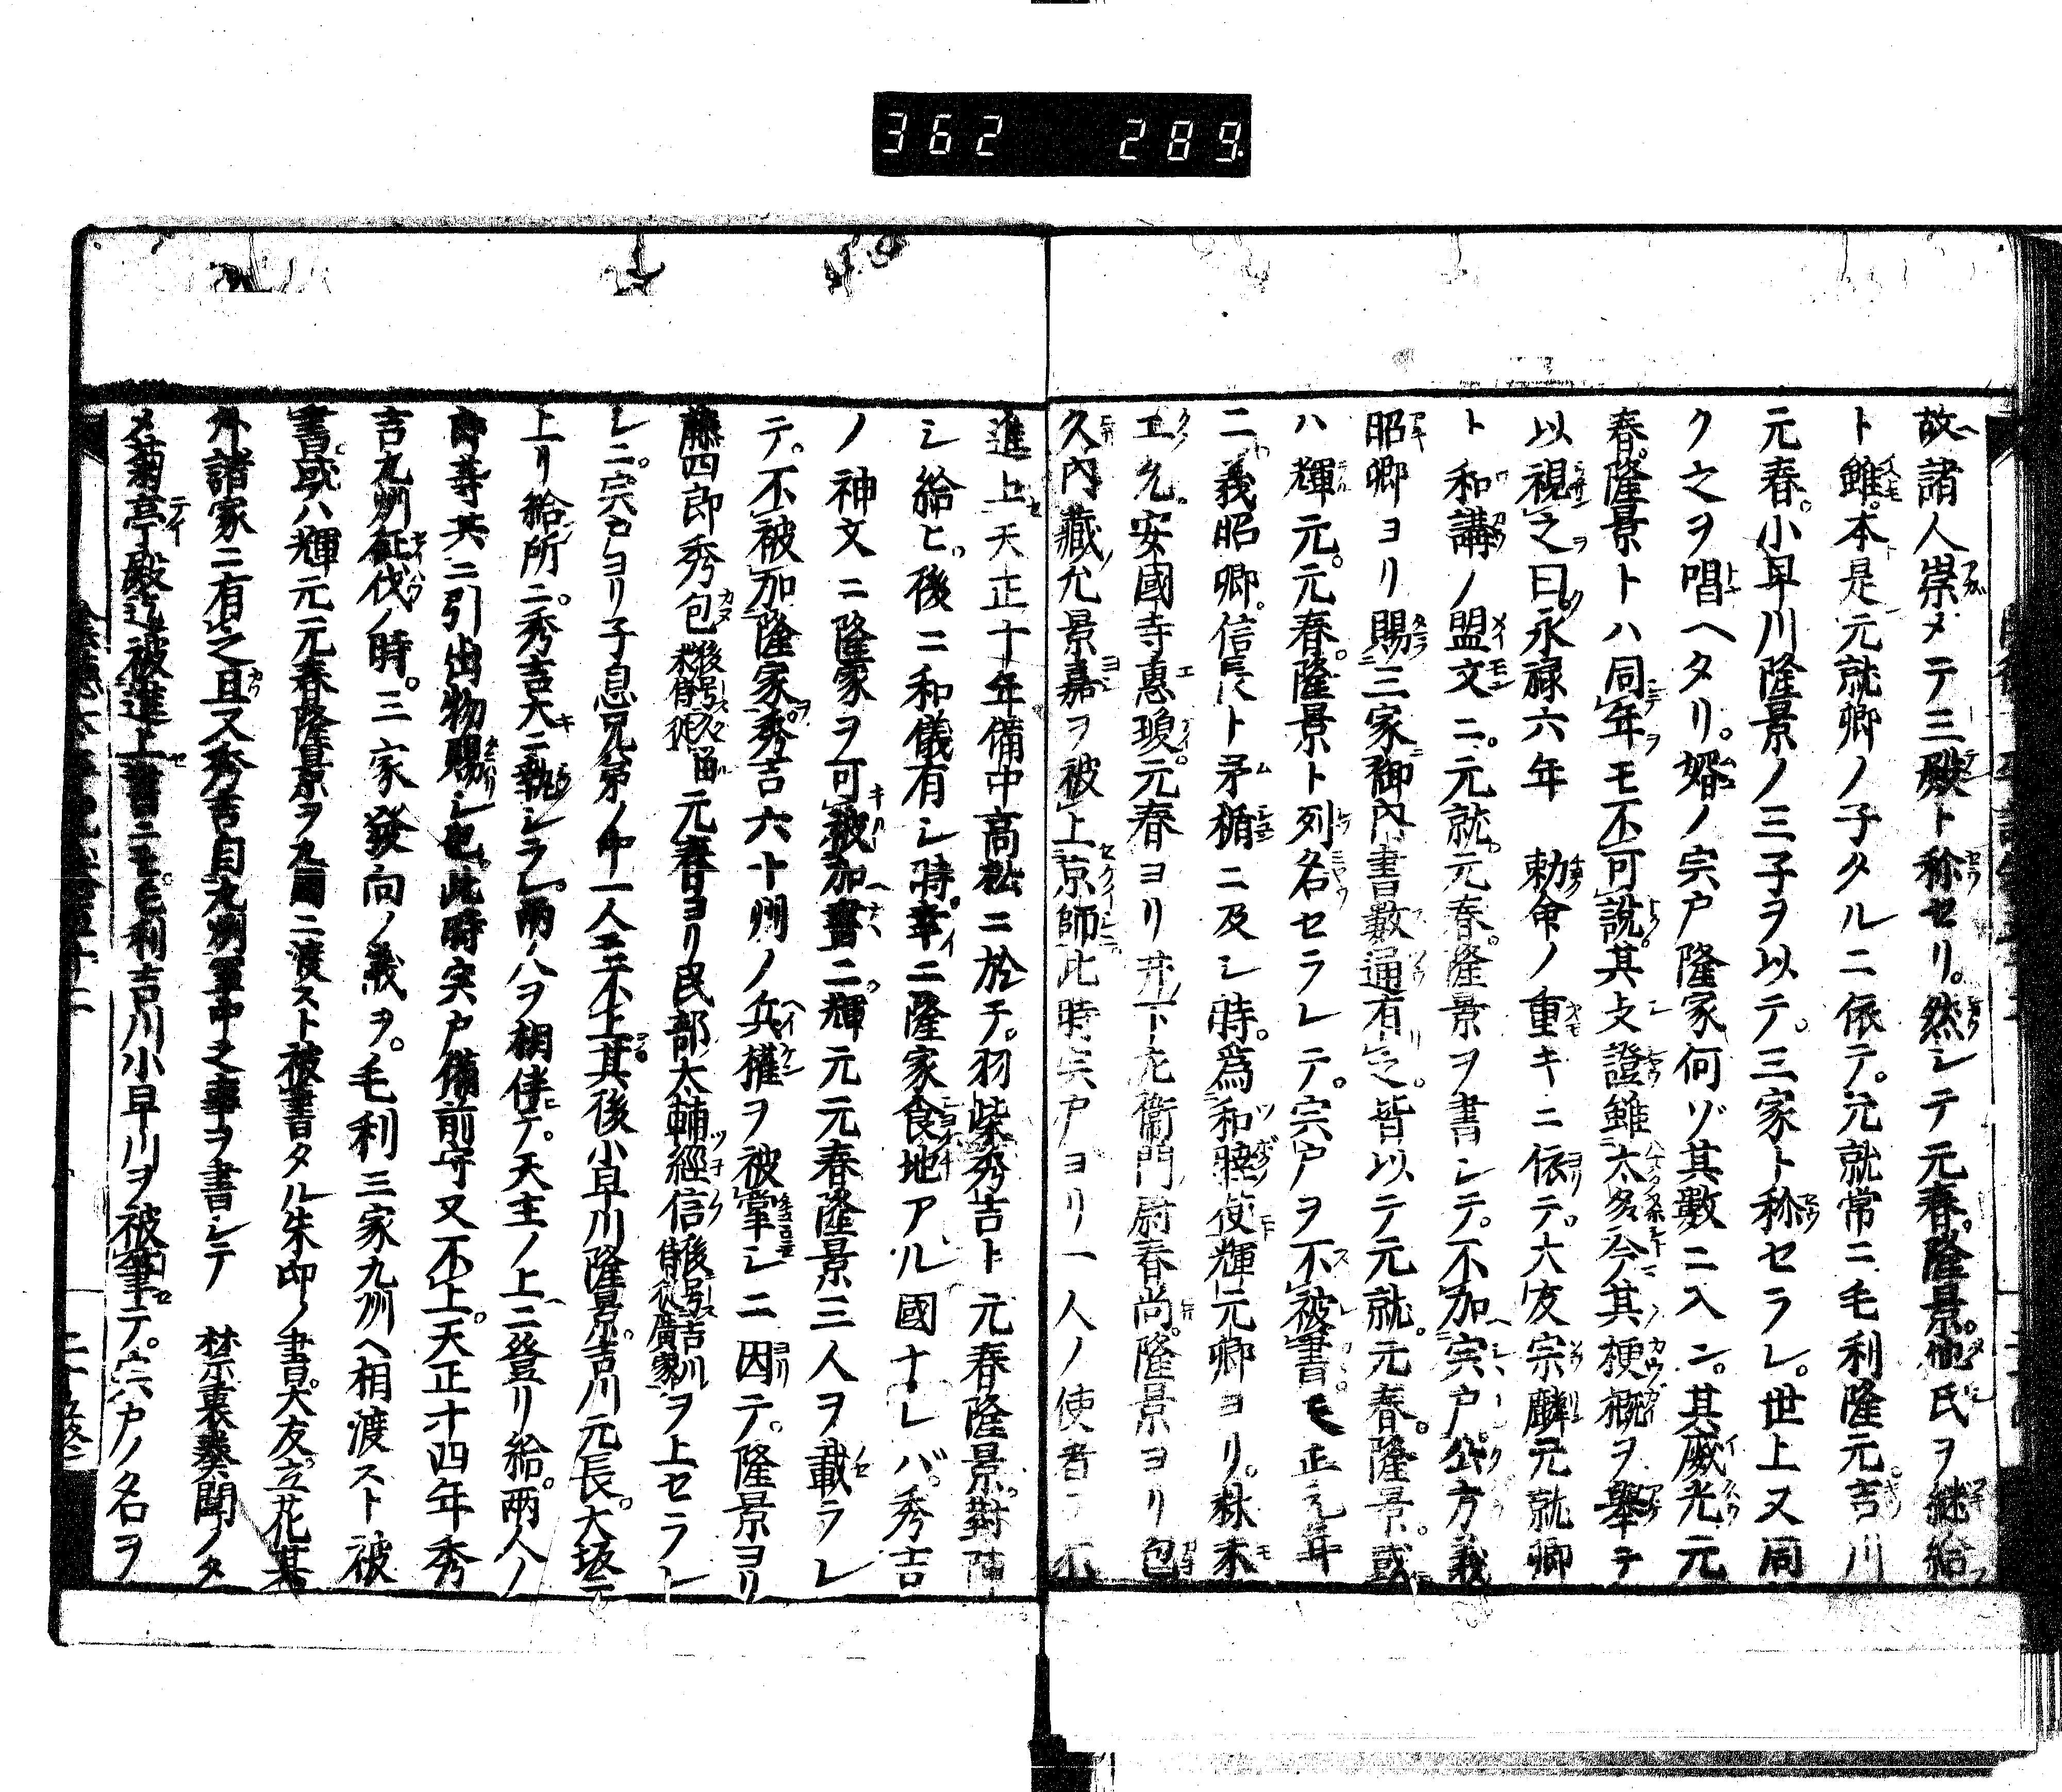 362 289
故諸人崇メテ三殿ト称セリ。然シテ元春。隆景。他氏ヲ継給
ト雖。本是元就卿ノ子タルニ依テ。元就常ニ毛利隆元。吉川
元春。小早川隆景ノ三子ヲ以テ。三家ト称セラレ。世上又同
ク之ヲ唱ヘタリ。婿ノ宍戸隆家何ゾ其數ニ入ン。其威光元
春。隆景トハ同年モ不可說。其支證雖太多今其梗概ヲ舉テ
以視之曰。永禄六年 勅命ノ重キニ依テ。大友宗麟元就卿
ト和講ノ盟文ニ。元就。元春。隆景ヲ書シテ。不加宍戸。公方義
昭卿ヨリ賜三家御内書數通有之。皆以テ元就。元春。隆景。或
ハ輝元。元春。隆景ト列名セラレテ。宍戸ヲ不被書モ正元年
ニ。義昭卿。信長ト矛楯ニ及シ時。爲和睦使輝元卿ヨリ。林木
工允。安國寺惠瓊。元春ヨリ井下左衞門尉春尚。隆景ヨリ包
久内藏允景嘉ヲ被上京師此時宍戸ヨリ一人ノ使者ヲ不
進上天正十年備中高松ニ於テ。羽柴秀吉ト元春隆景。對陣
シ給ヒ。後ニ和儀有シ時。幸ニ隆家食地アル國ナレバ。秀吉
ノ神文ニ隆家ヲ可被加書ニ。輝元元春隆景三人ヲ載ラレ
テ。不被加隆家。秀吉六十州ノ兵權ヲ被掌シニ因テ。隆景ヨリ
藤四郎秀包後号久留米侍從元春ヨリ民部大輔經信後号吉川侍從廣家ヲ上セラレ
シニ。宍戸ヨリ子息兄弟ノ中一人モ不上其後小早川隆景。吉川元長。大坂ニ
上リ給所ニ。秀吉大ニ執シラレ。兩ノハヲ相伴テ。天主ノ上ニ登リ給。兩人ノ
郎等共ニ引出物賜シ也。此時宍戸備前守又不上。天正十四年秀
吉九州征伐ノ時。三家發向ノ義ヲ。毛利三家九州ヘ相渡スト被
書。或ハ輝元元春隆景ヲ九國ニ渡スト被書タル朱印ノ書。大友立花其
外諸家ニ有之且又秀吉自九州軍中之事ヲ書シテ 禁裏奏聞ノタ
メ菊亭殿迄被進上書ニモ。毛利吉川小早川ヲ被筆テ。宍戸ノ名ヲ